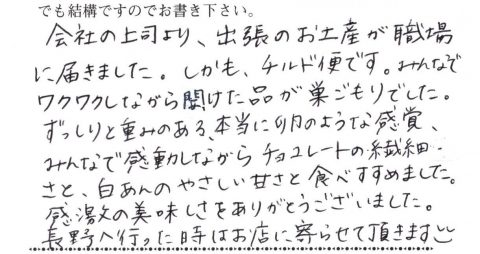 でも結構ですのでお書き下さい。
会社の上司より、出張のお土産が職場
に届きました。しかも、チルド便です。みんなで
ワクワクしながら開けた品が巣ごもりでした。
ずっしりと重みのある、本当に卵のような感覚、
みんなで感動しながらチョコレートの繊細
さと、白あんのやさしい甘さと食べすすめました。
感激の美味しさをありがとうございました。
長野へ行った時はお店に寄らせて頂きます